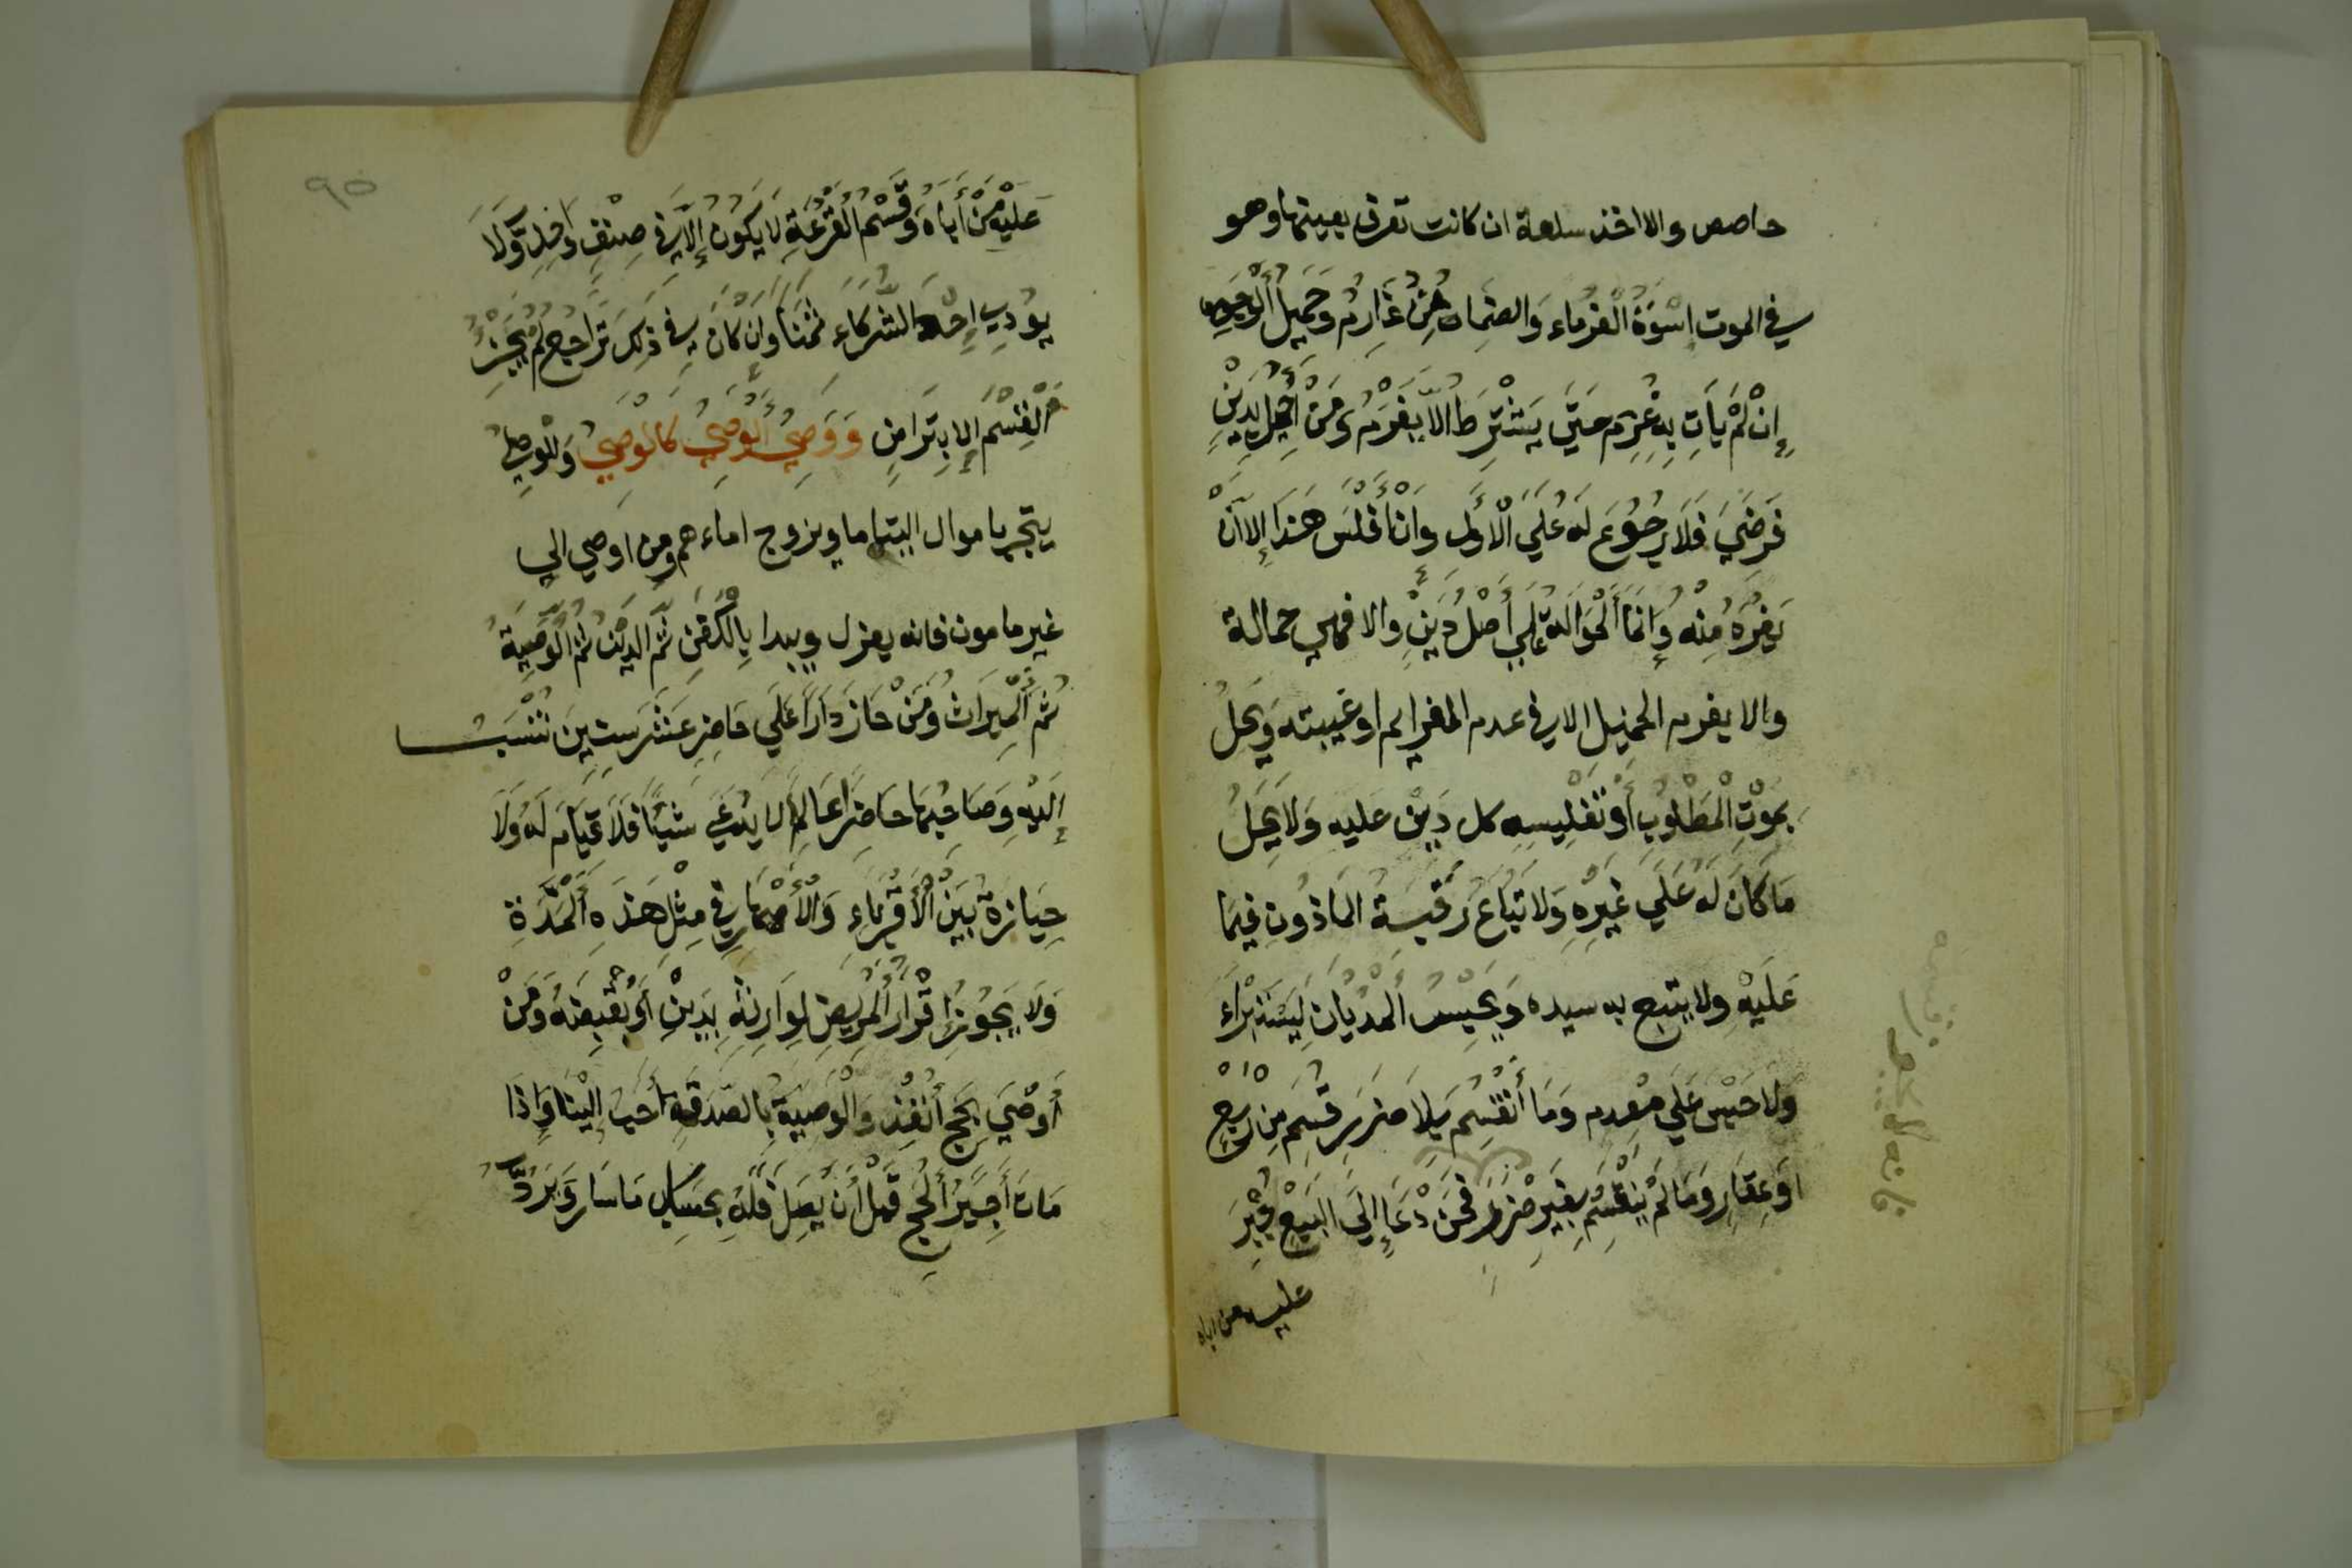 حاصص والا اخذ سلعة ان كانت تعرف بعينها وهو
في الموت اسْوَةُ الْغُرَمَاء وَالضَّامِن غَارِمٌ وَحَمِيلُ الْوَجْهِ
إِنْ لَمْ يَأتِ بِهِ غَرِمَ حَتَّي يَشْتَرِطَ الاَّ يَغْرَمُ وَمَنْ أُحِيلَ بِدَيْنٍ
فَرَضِيَ فَلَا رُجُوعَ لَهُ عَلَي الْأَوَّلِ وَانْ أَفْلَسَ هَذَا إِلا اَنْ
يَغُرَّهُ مِنْهُ وَإِنَّمَا الْحَوَالَةُ عَلَي أَصْلِ دَيْنٍ والا فهي حمالة
والا يغرم الحميل الا في عدم الغريم او غيبته وَيَحِلُّ
بِمَوْتِ الْمَطْلُوبِ أَوْ تَفْلِيسِهِ كل دَيْن عليه وَلَا يَحِلُّ
مَا كَانَ لَهُ عَلَي غَيْرِهِ وَلَا تُبَاعُ رَقَبَةُ المَاذُونِ فِيمَا
عَلَيْهِ ولا يتبع به سيده وَيُحْبَسُ الْمِدْيَانُ لِيُسْتَبْرَاءَ
ولا حَبْسَ عَلَي مُعْدِم وَمَا أنْقَسَمَ بِلَا ضَرَرٍ قُسِمَ مِنْ رَبْعٍ
اوْ عَقَارٍ وَمَا لَمْ يَنْقَسِمْ بِغَيْرِ ضَرَرٍ فَمَنْ دَعَا إِلَي البَيْعِ أُجْبِرَ
عليه من اباه
فانه لا يجوز قسمه
٩٥
عَلَيْهِ مَنْ أَبَاهُ وَقَسْمُ الْقُرْعَةِ لَا يَكُونُ إِلاَّ فِي صِنْفٍ وَاحِدٍ وَّلَا
يُوَدِّي احَدُ الشُّرَكَاءِ ثَمَنًا وَإِنْ كَانَ فِي ذَلِكَ تَرَاجُعٌ لَمْ يَجُزْ
الْقَسْمُ إِلا بِتَرَاضٍ وَوَصِيُّ الْوَصِيِّ كَالْوَصِيِّ وَلِلْوَصِيِّ
يتجر باموال اليتاما ويزوج اماءهم ومن اوصي الي
غير مامون فانه يعزل ويبدا بِالْكَفَنِ ثُمَّ الدَّيْنُ ثُمَّ الْوَصِيَّةُ
ثُمَّ الْمِيرَاثُ وَمَنْ حَازَ دَارًا عَلَي حَاضِرٍ عَشْرَ سِنِينَ تُنْسَبُ
إِلَيْهِ وَصَاحِبُهَا حَاضِرًا عَالِمٌ لا يَدَّعِي شَيْئًا فَلَا قِيَامَ لَهُ وَلَا
حِيَازَةَ بَيْنَ الْأَقْرِبَاءِ وَالْأَصْهَارِ فِي مِثْلِ هَذِهِ الْمُدَّةِ
وَلَا يَجُوزُ إِقْرَارُ الْمَرِيضِ لِوَارِثِهِ بِدَيْنٍ أَوْ بِقَبْضِهِ وَمَنْ
أَوْصَي بِحَجٍّ أُنْفِذَ وَالْوَصِيَّةُ بِالصَّدَقَةِ أَحَبُّ إِلَيْنَا وَإِذَا
مَاتَ أَجِيرُ الْحَجِّ قَبْلَ أَنْ يَصِلَ فَلَهُ بِحَسَابِ مَا سَارَ وَيَرُدُّ